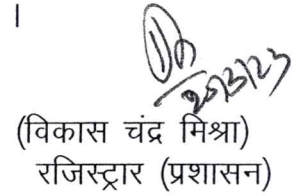 ।
20/3/23
(विकास चंद्र मिश्रा)
रजिस्ट्रार (प्रशासन)